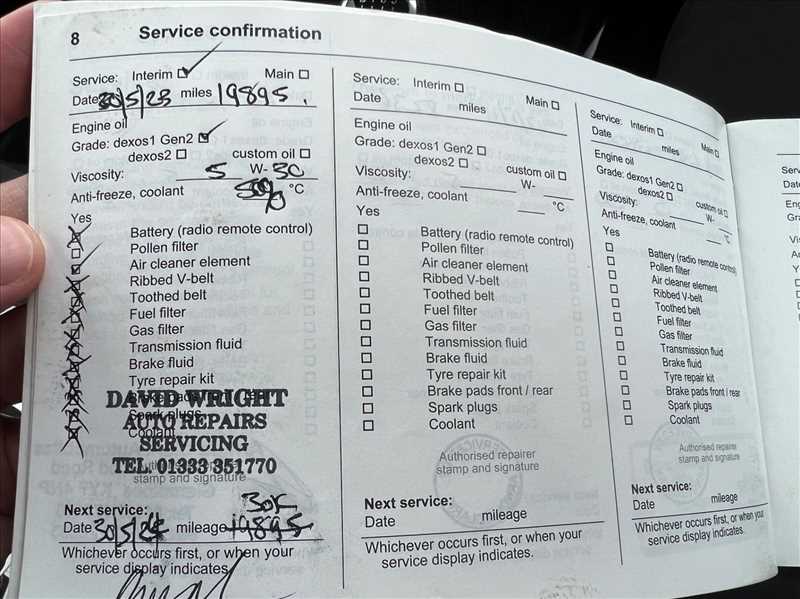 8 Service confirmation
Service: Interim ☑ Main ☐
Date 30/5/23 miles 19895.
Engine oil
Grade: dexos1 Gen2 ☑
dexos2 ☐ custom oil ☐
Viscosity: 5 W- 30
Anti-freeze, coolant °C
Yes
Battery (radio remote control)
Pollen filter
Air cleaner element
Ribbed V-belt
Toothed belt
Fuel filter
Gas filter
Transmission fluid
Brake fluid
Tyre repair kit
DAVID WRIGHT
Spark plugs
AUTO REPAIRS
Coolant
SERVICING
TEL. 01333 351770
stamp and signature
Next service: 30K
Date 30/5/24 mileage 19895
Whichever occurs first, or when your
service display indicates.
Service: Interim ☐ Main ☐
Date miles
Engine oil
Grade: dexos1 Gen2 ☐
dexos2 ☐ custom oil ☐
Viscosity: W-
Anti-freeze, coolant °C
Yes
☐ Battery (radio remote control)
☐ Pollen filter
☐ Air cleaner element
☐ Ribbed V-belt
☐ Toothed belt
☐ Fuel filter
☐ Gas filter
☐ Transmission fluid
☐ Brake fluid
☐ Tyre repair kit
☐ Brake pads front / rear
☐ Spark plugs
☐ Coolant
Authorised repairer
stamp and signature
Next service:
Date mileage
Whichever occurs first, or when your
service display indicates.
Service: Interim ☐ Main ☐
Date miles
Engine oil
Grade: dexos1 Gen2 ☐
dexos2 ☐ custom oil ☐
Viscosity: W-
Anti-freeze, coolant °C
Yes
☐ Battery (radio remote control)
☐ Pollen filter
☐ Air cleaner element
☐ Ribbed V-belt
☐ Toothed belt
☐ Fuel filter
☐ Gas filter
☐ Transmission fluid
☐ Brake fluid
☐ Tyre repair kit
☐ Brake pads front / rear
☐ Spark plugs
☐ Coolant
Authorised repairer
stamp and signature
Next service:
Date mileage
Whichever occurs first, or when your
service display indicates.